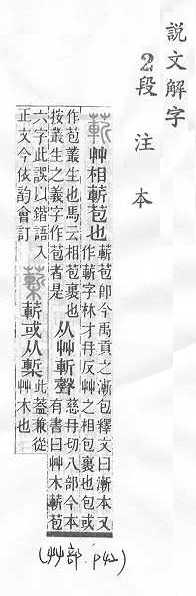 說文解字
2段注本
蔪 艸相蔪苞也
蔪苞卽今禹貢之漸包釋文曰漸本又
作蔪字林才冄反艸之相包裹也包或
作苞叢生也馬云相苞裹也
按叢生之義字作苞者是
从艸斬聲
慈冄切八部今本
有書曰艸木蔪苞
六字此誤以鍇語入
正文今依韵會訂
蔪或从槧
此葢兼從
艸木也
(艸部. p42)